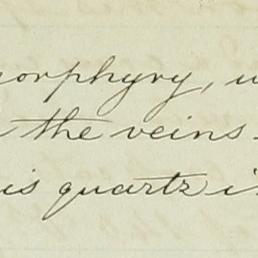 porphyry,
the veins
is quartz